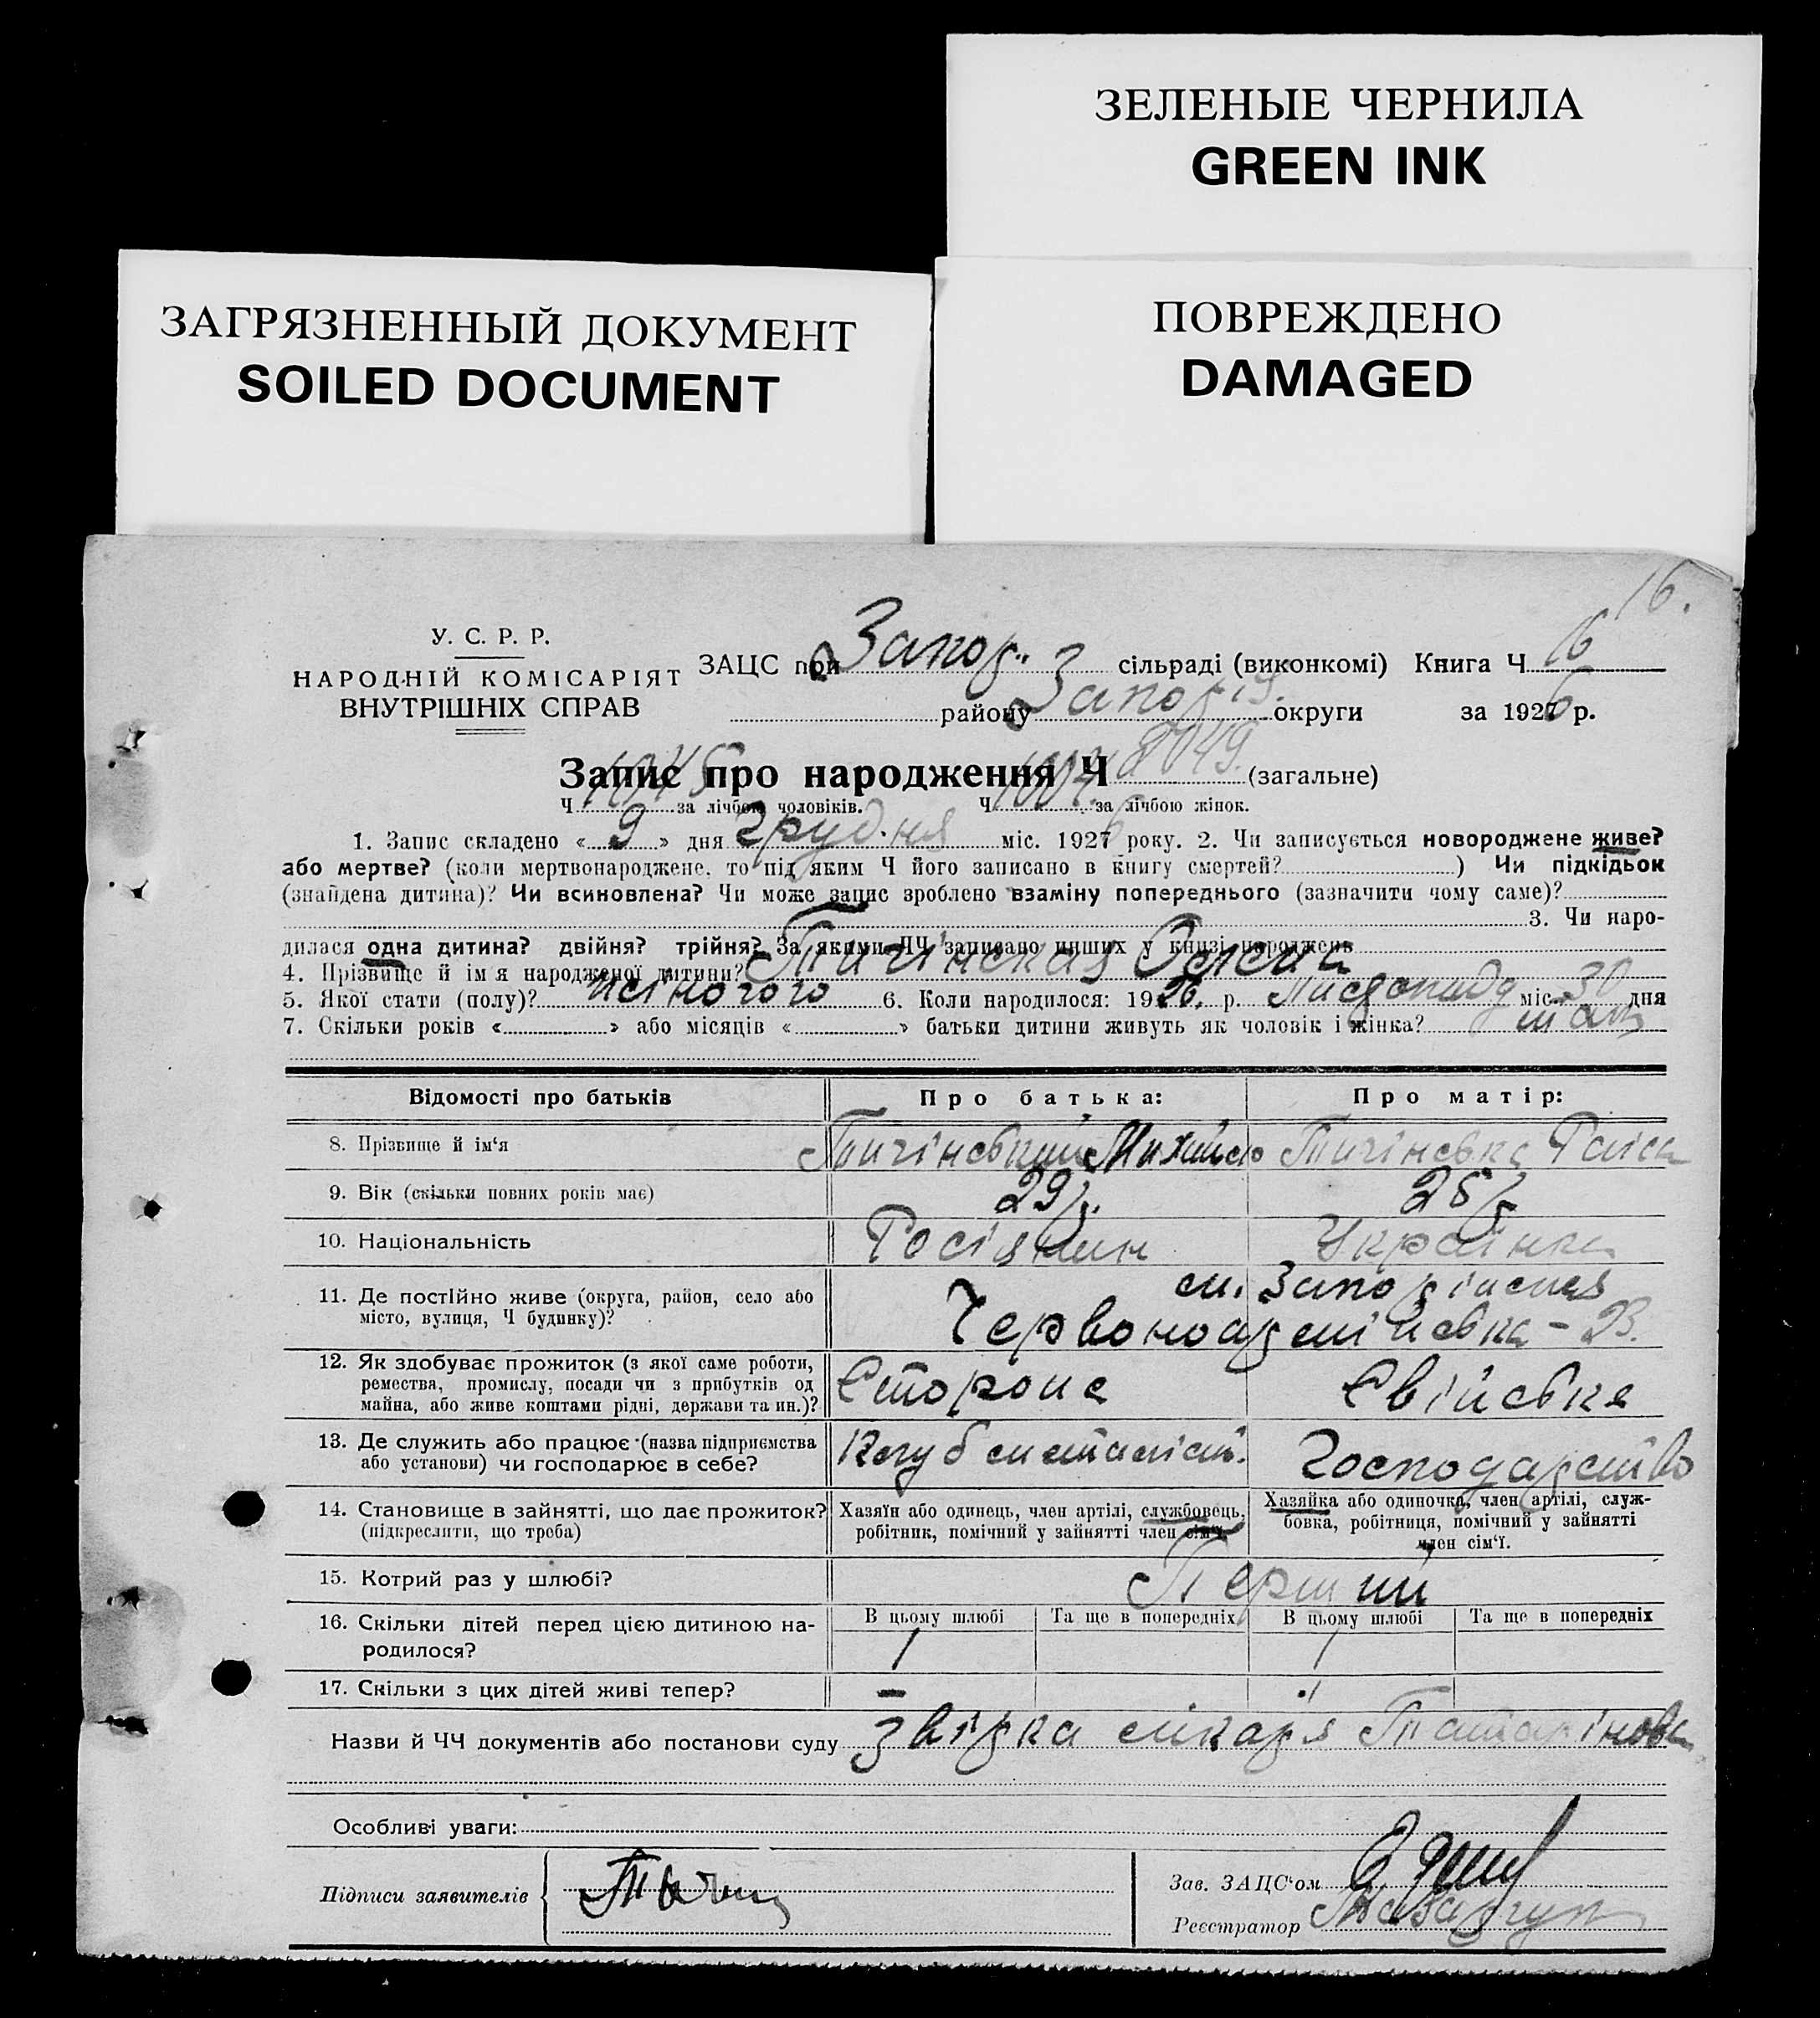 ЗЕЛЕНЫЕ ЧЕРНИЛА
GREEN INK
ЗАГРЯЗНЕННЫЙ ДОКУМЕНТ
SOILED DOCUMENT
ПОВРЕЖДЕНО
DAMAGED
16.
У. С. Р. Р.
НАРОДНІЙ КОМІСАРІЯТ
ВНУТРІШНІХ СПРАВ
ЗАЦС при Запор. сільраді (виконкомі) Книга Ч 16
району Запоріз. округи за 1926 р.
Запис про народження Ч 8049. (загальне)
Ч за лічбою чоловіків. Ч за лічбою жінок.
1. Запис складено « 9 » дня грудня міс. 1926 року. 2. Чи записується новороджене живе?
або мертве? (коли мертвонароджене, то під яким Ч його записано в книгу смертей? ) Чи підкідьок
(знайдена дитина)? Чи всиновлена? Чи може запис зроблено взаміну попереднього (зазначити чому саме)?
3. Чи наро-
дилася одна дитина? двійня? трійня? За якими ЧЧ записано инших у книзі народжень
4. Прізвище й ім'я народженої дитини? Тичінская
5. Якої стати (полу)? жіночого 6. Коли народилося: 1926. р. Листопаду міс. 30 дня
7. Скільки років « » або місяців « » батьки дитини живуть як чоловік і жінка? так
Відомості про батьків Про батька: Про матір:
8. Прізвище й ім'я Тичінський Михайло Тичінська Раіса
9. Вік (скільки повних років має) 29 р. 25 р.
10. Національність Росіянин Українка
11. Де постійно живе (округа, район, село або м. Запоріжжя
місто, вулиця, Ч будинку)? Червоноармійська - 23.
12. Як здобуває прожиток (з якої саме роботи,
ремества, промислу, посади чи з прибутків од Сторож Свійське
майна, або живе коштами рідні, держави та ин.)?
13. Де служить або працює (назва підприємства Клуб металіст. Господарство
або установи) чи господарює в себе?
14. Становище в зайнятті, що дає прожиток? Хазяїн або одинець, член артілі, службовець, Хазяйка або одиночка, член артілі, служ-
(підкреслити, що треба) робітник, помічний у зайнятті член сім'ї. бовка, робітниця, помічний у зайнятті
член сім'ї.
15. Котрий раз у шлюбі? Перший
16. Скільки дітей перед цією дитиною на- В цьому шлюбі Та ще в попередніх В цьому шлюбі Та ще в попередніх
родилося? 1 1
17. Скільки з цих дітей живі тепер? –
Назви й ЧЧ документів або постанови суду звідка лікаря Татарінова
Особливі уваги:
Підписи заявителів
Зав. ЗАЦС'ом
Реєстратор